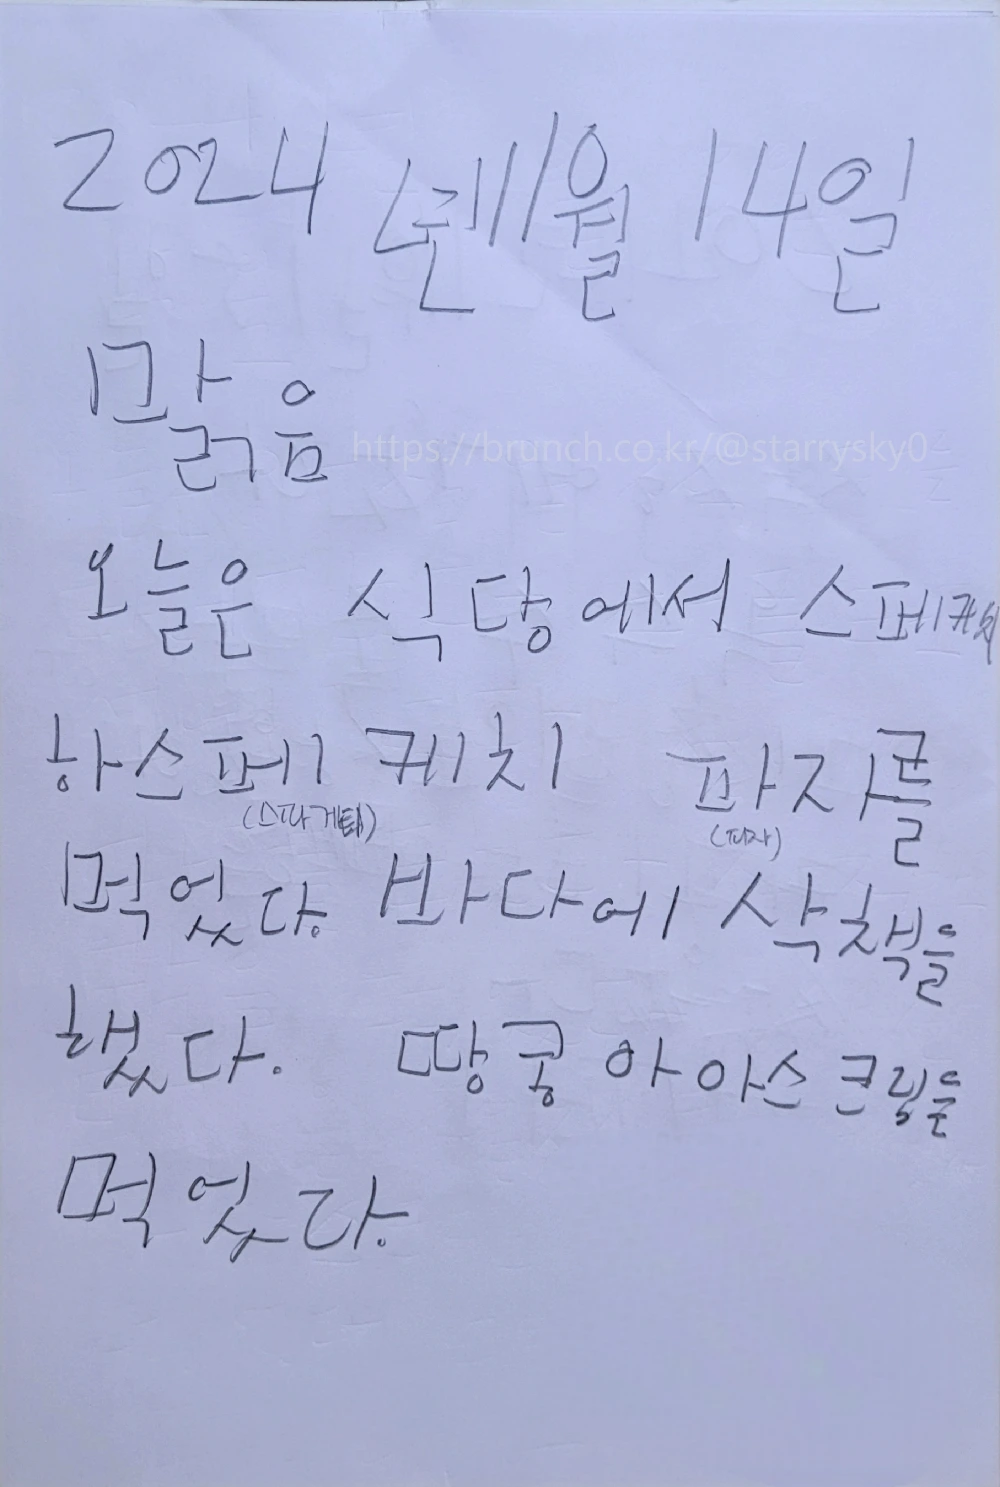 2024 년 11월 14일
맑음
https://brunch.co.kr/@starrysky0
오늘은 식당에서 스페케치
하스페케치 파자를
(스파게티) (피자)
먹었다. 바다에 삭책을
했다. 땅콩 아아스크림을
먹었다.